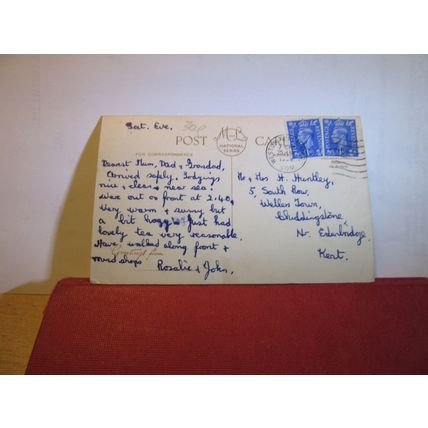 Sat. Eve.
30p
POST CA
M B
NATIONAL
SERIES
FOR CORRESPONDENCE
Dearest Mum, Dad & Grandad,
Arrived safely, Lodgings
nice & clean & near sea.
were out on front at 2.40,
very warm & sunny but
a bit foggy. Just had
lovely tea very reasonable.
Have walked along front &
round shops
Greetings from
Rosalie & John.
Mr & Mrs H. Huntley,
5, South Row,
Wellers Town,
Chiddingstone,
Nr. Edenbridge,
Kent.